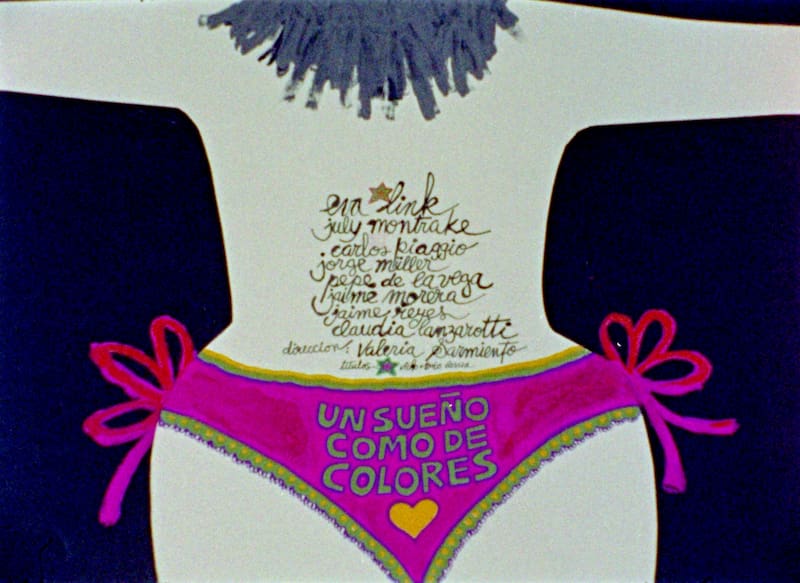 eva link
july montrake
carlos piaggio
jorge müller
pepe de la vega
jaime morera
jaime reyes
claudia lanzarotti
direccion: Valeria Sarmiento
titulos
UN SUEÑO
COMO DE
COLORES